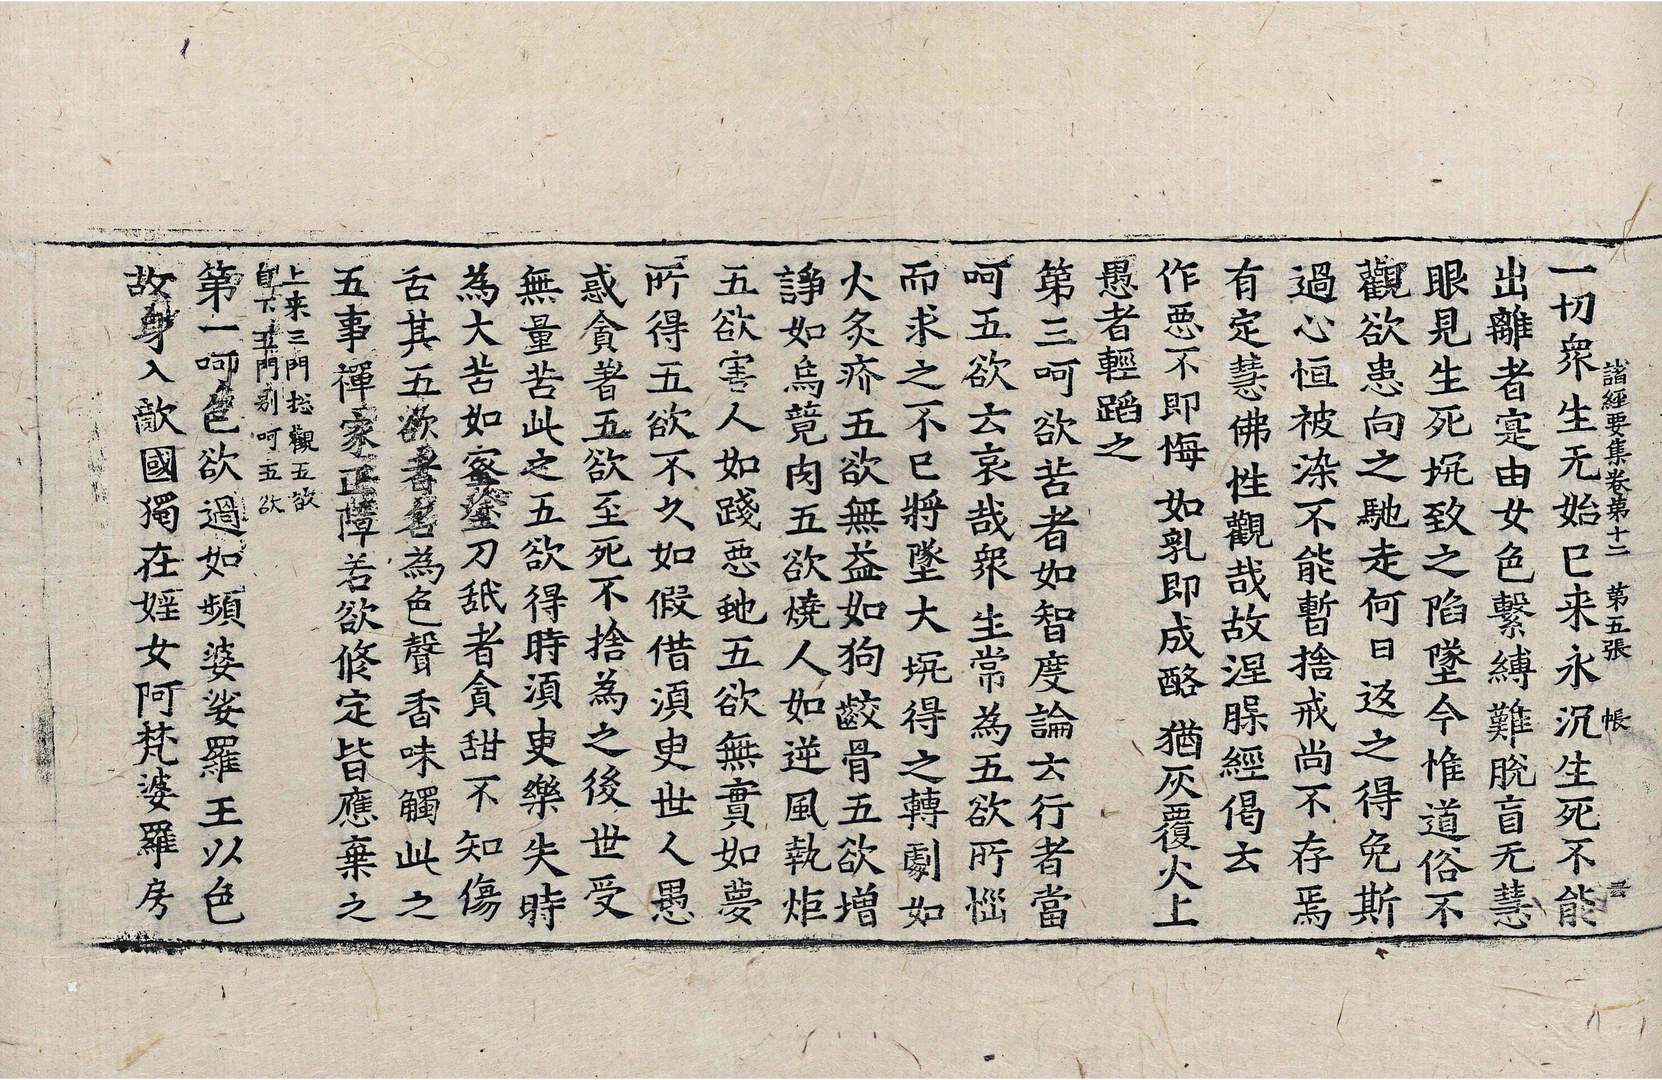 諸經要集卷第十二　第五張　帳
一切衆生无始已来永沉生死不能
出離者寔由女色繫縛難脫盲无慧
眼見生死坑致之陷墜今惟道俗不
觀欲患向之馳走何日返之得免斯
過心恒被染不能暫捨戒尚不存焉
有定慧佛性觀哉故涅槃經偈云
作惡不即悔　如乳即成酪　猶灰覆火上
愚者輕蹈之
第三呵欲苦者如智度論云行者當
呵五欲云哀哉衆生常為五欲所惱
而求之不已將墜大坑得之轉劇如
火炙疥五欲無益如狗齩骨五欲增
諍如烏競肉五欲燒人如逆風執炬
五欲害人如踐惡虵五欲無實如夢
所得五欲不久如假借須臾世人愚
惑貪著五欲至死不捨為之後世受
無量苦此之五欲得時須臾樂失時
為大苦如蜜塗刀舐者貪甜不知傷
舌其五欲者名為色聲香味觸此之
五事禪家正障若欲修定皆應棄之
上来三門揔觀五欲
自下五門別呵五欲
第一呵色欲過如頻婆娑羅王以色
故身入敵國獨在婬女阿梵婆羅房